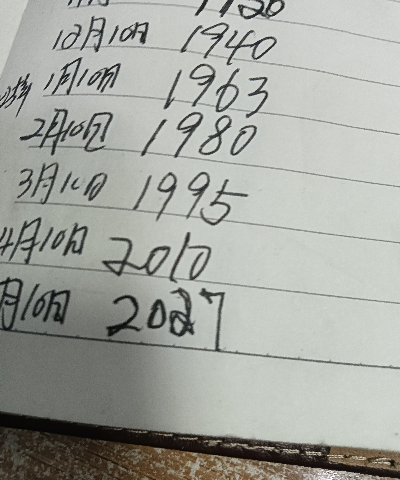 1920
12月10日 1940
1月10日 1963
2月10日 1980
3月10日 1995
4月10日 2010
月10日 2027